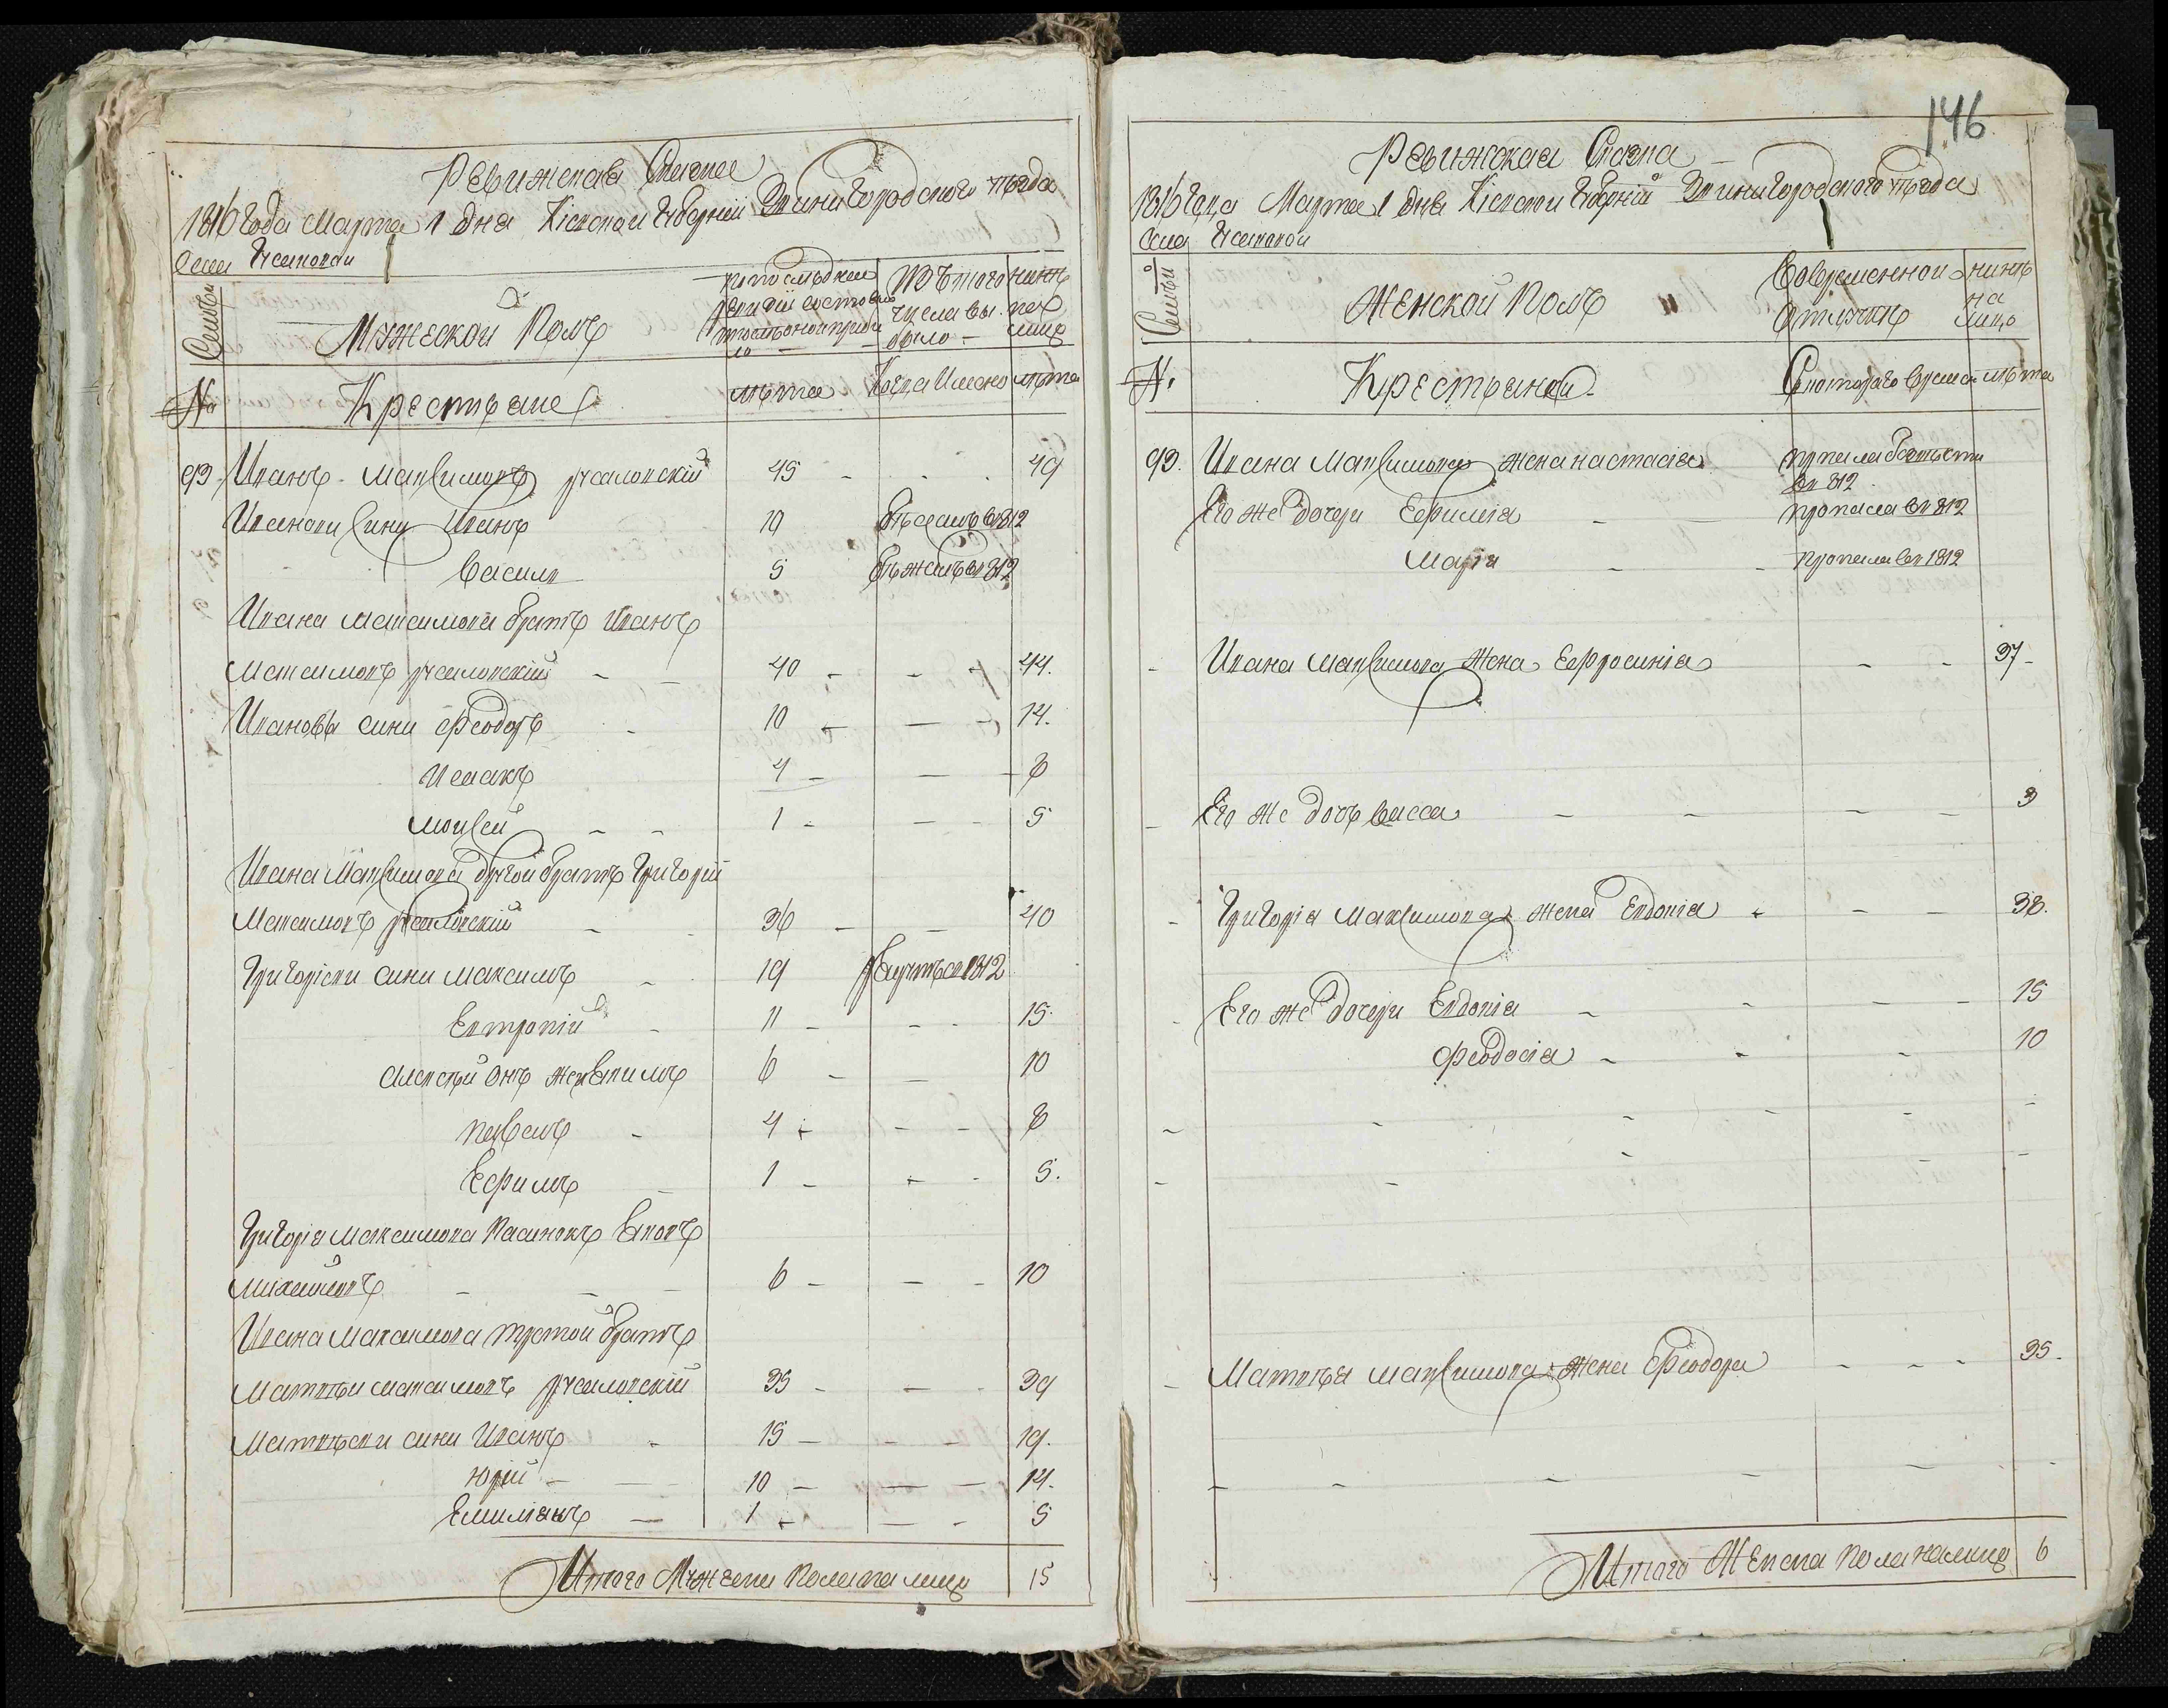 146
Ревижская Сказка
1816 года Марта 1 дня Кіевской Губерніи Звинигородского повѣта
Села
Семьи
Мужеской Полъ
по последней ревизіи состояло
изъ того числа выбыло
нинѣ на лицо
№
Крестьяне
лѣта
Когда Имено
лѣта
93. Иванъ Максимовъ 45 49
Ивановы сины Иванъ 10 1812
Василь 5 бѣжалъ въ 1812
Ивана Максимова братъ Иванъ
Максимовъ 40 44.
Ивановы сини Феодоръ 10 14.
Исаакъ 4 8
Моисей 1 5
Ивана Максимова другой братъ Григорій
Максимовъ 36 40
Григоріеви сини Максимъ 19 1812
Евтропій 11 15.
Алексѣй онъ же 6 10
Павелъ 4 8
Ефимъ 1 5.
Григорія Максимова пасинокъ
Михайловъ 6 10
Ивана Максимова третой братъ
Матвѣй Максимовъ 35 39
Матвѣеви сини Иванъ 15 19.
Юрій 10 14.
Емиліанъ 1 5
Итого Мужеска пола на лицо 15
Ревижская Сказка
1816 года Марта 1 дня Кіевской Губерніи Звинигородского повѣта
Села
Семьи
Женской Полъ
Во временной отлучкѣ
нинѣ на лицо
№.
Крестьянки
С которого времени
лѣта
93. Ивана Максимова жена Настасія пропала
въ 812
Его же дочери пропала въ 812
Марія пропала въ 1812
Ивана Максимова жена Ефросинія 37
Его же дочь Васса 3
Григорія Максимова жена Евдокія 38.
Его же дочери Евдокія 15
Феодосія 10
Матвѣя Максимова жена Феодора 35.
Итого Женска пола на лицо 6